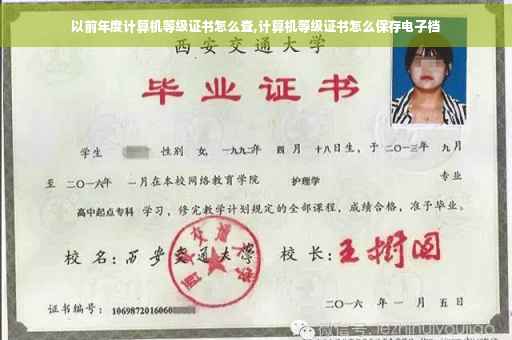 以前年度计算机等级证书怎么查,计算机等级证书怎么保存电子档
西安交通大学
毕业证书
学生 性别 女, 一九九二年 四月 十八日生, 于二〇一三年 九月
至 二〇一六年 一月在本校网络教育学院 护理学 专业
高中起点专科 学习, 修完教学计划规定的全部课程, 成绩合格, 准予毕业。
校名: 西安交通大学 校长: 王树国
证书编号: 1069872016060
二〇一六年 一月 五日
微信号: jezhihuiyoujiao